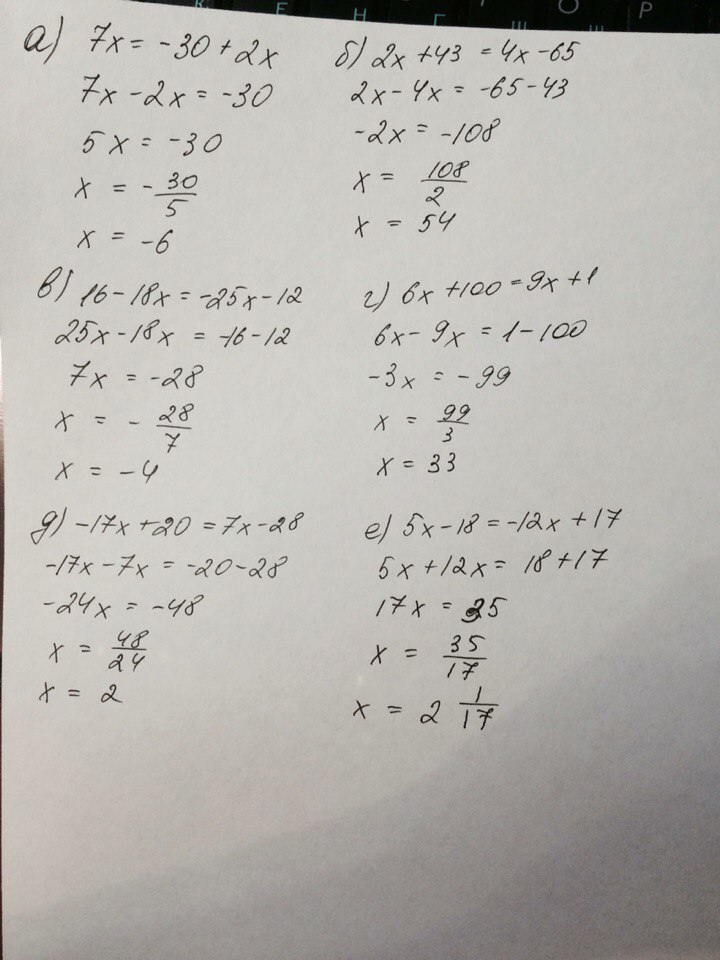 К Е Н Г Ш О Р
а) 7x = -30 + 2x
7x - 2x = -30
5x = -30
x = - 30/5
x = -6
б) 2x + 43 = 4x - 65
2x - 4x = -65 - 43
-2x = -108
x = 108/2
x = 54
в) 16 - 18x = -25x - 12
25x - 18x = -16 - 12
7x = -28
x = - 28/7
x = -4
г) 6x + 100 = 9x + 1
6x - 9x = 1 - 100
-3x = -99
x = 99/3
x = 33
д) -17x + 20 = 7x - 28
-17x - 7x = -20 - 28
-24x = -48
x = 48/24
x = 2
е) 5x - 18 = -12x + 17
5x + 12x = 18 + 17
17x = 35
x = 35/17
x = 2 1/17